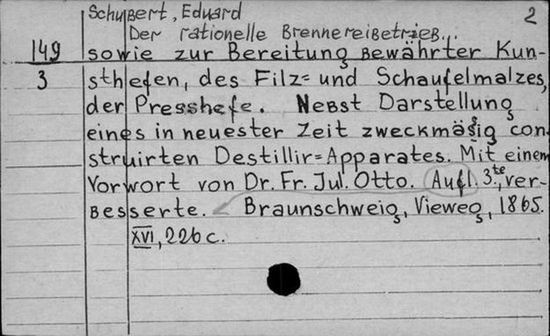 2
Schubert, Eduard
Der rationelle Brennereibetrieb...
149 sowie zur Bereitung bewährter Kun-
3 sthefen, des Filz= und Schaufelmalzes,
der Presshefe. Nebst Darstellung
eines in neuester Zeit zweckmäsig con
struirten Destillir=Apparates. Mit einem
Vorwort von Dr. Fr. Jul. Otto. Aufl. 3.te, ver-
besserte. Braunschweig, Vieweg, 1865.
XVI, 226 c.